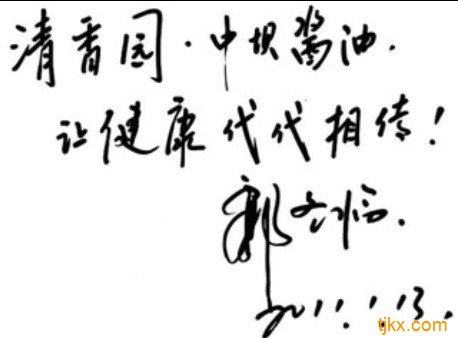 清香园·中坝酱油.
让健康代代相传!
郭冬临.
2011.1.13.
tjkx.com